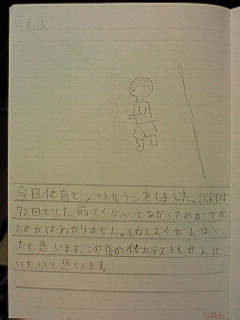 5.13
今日体育でシャトルランをしました。記録は
72回でした。前とくらべて上がったのか下がっ
たのかはわかりません。しかしよくがんばっ
たと思います。この後の体力テストもがんば
りたいと思います。